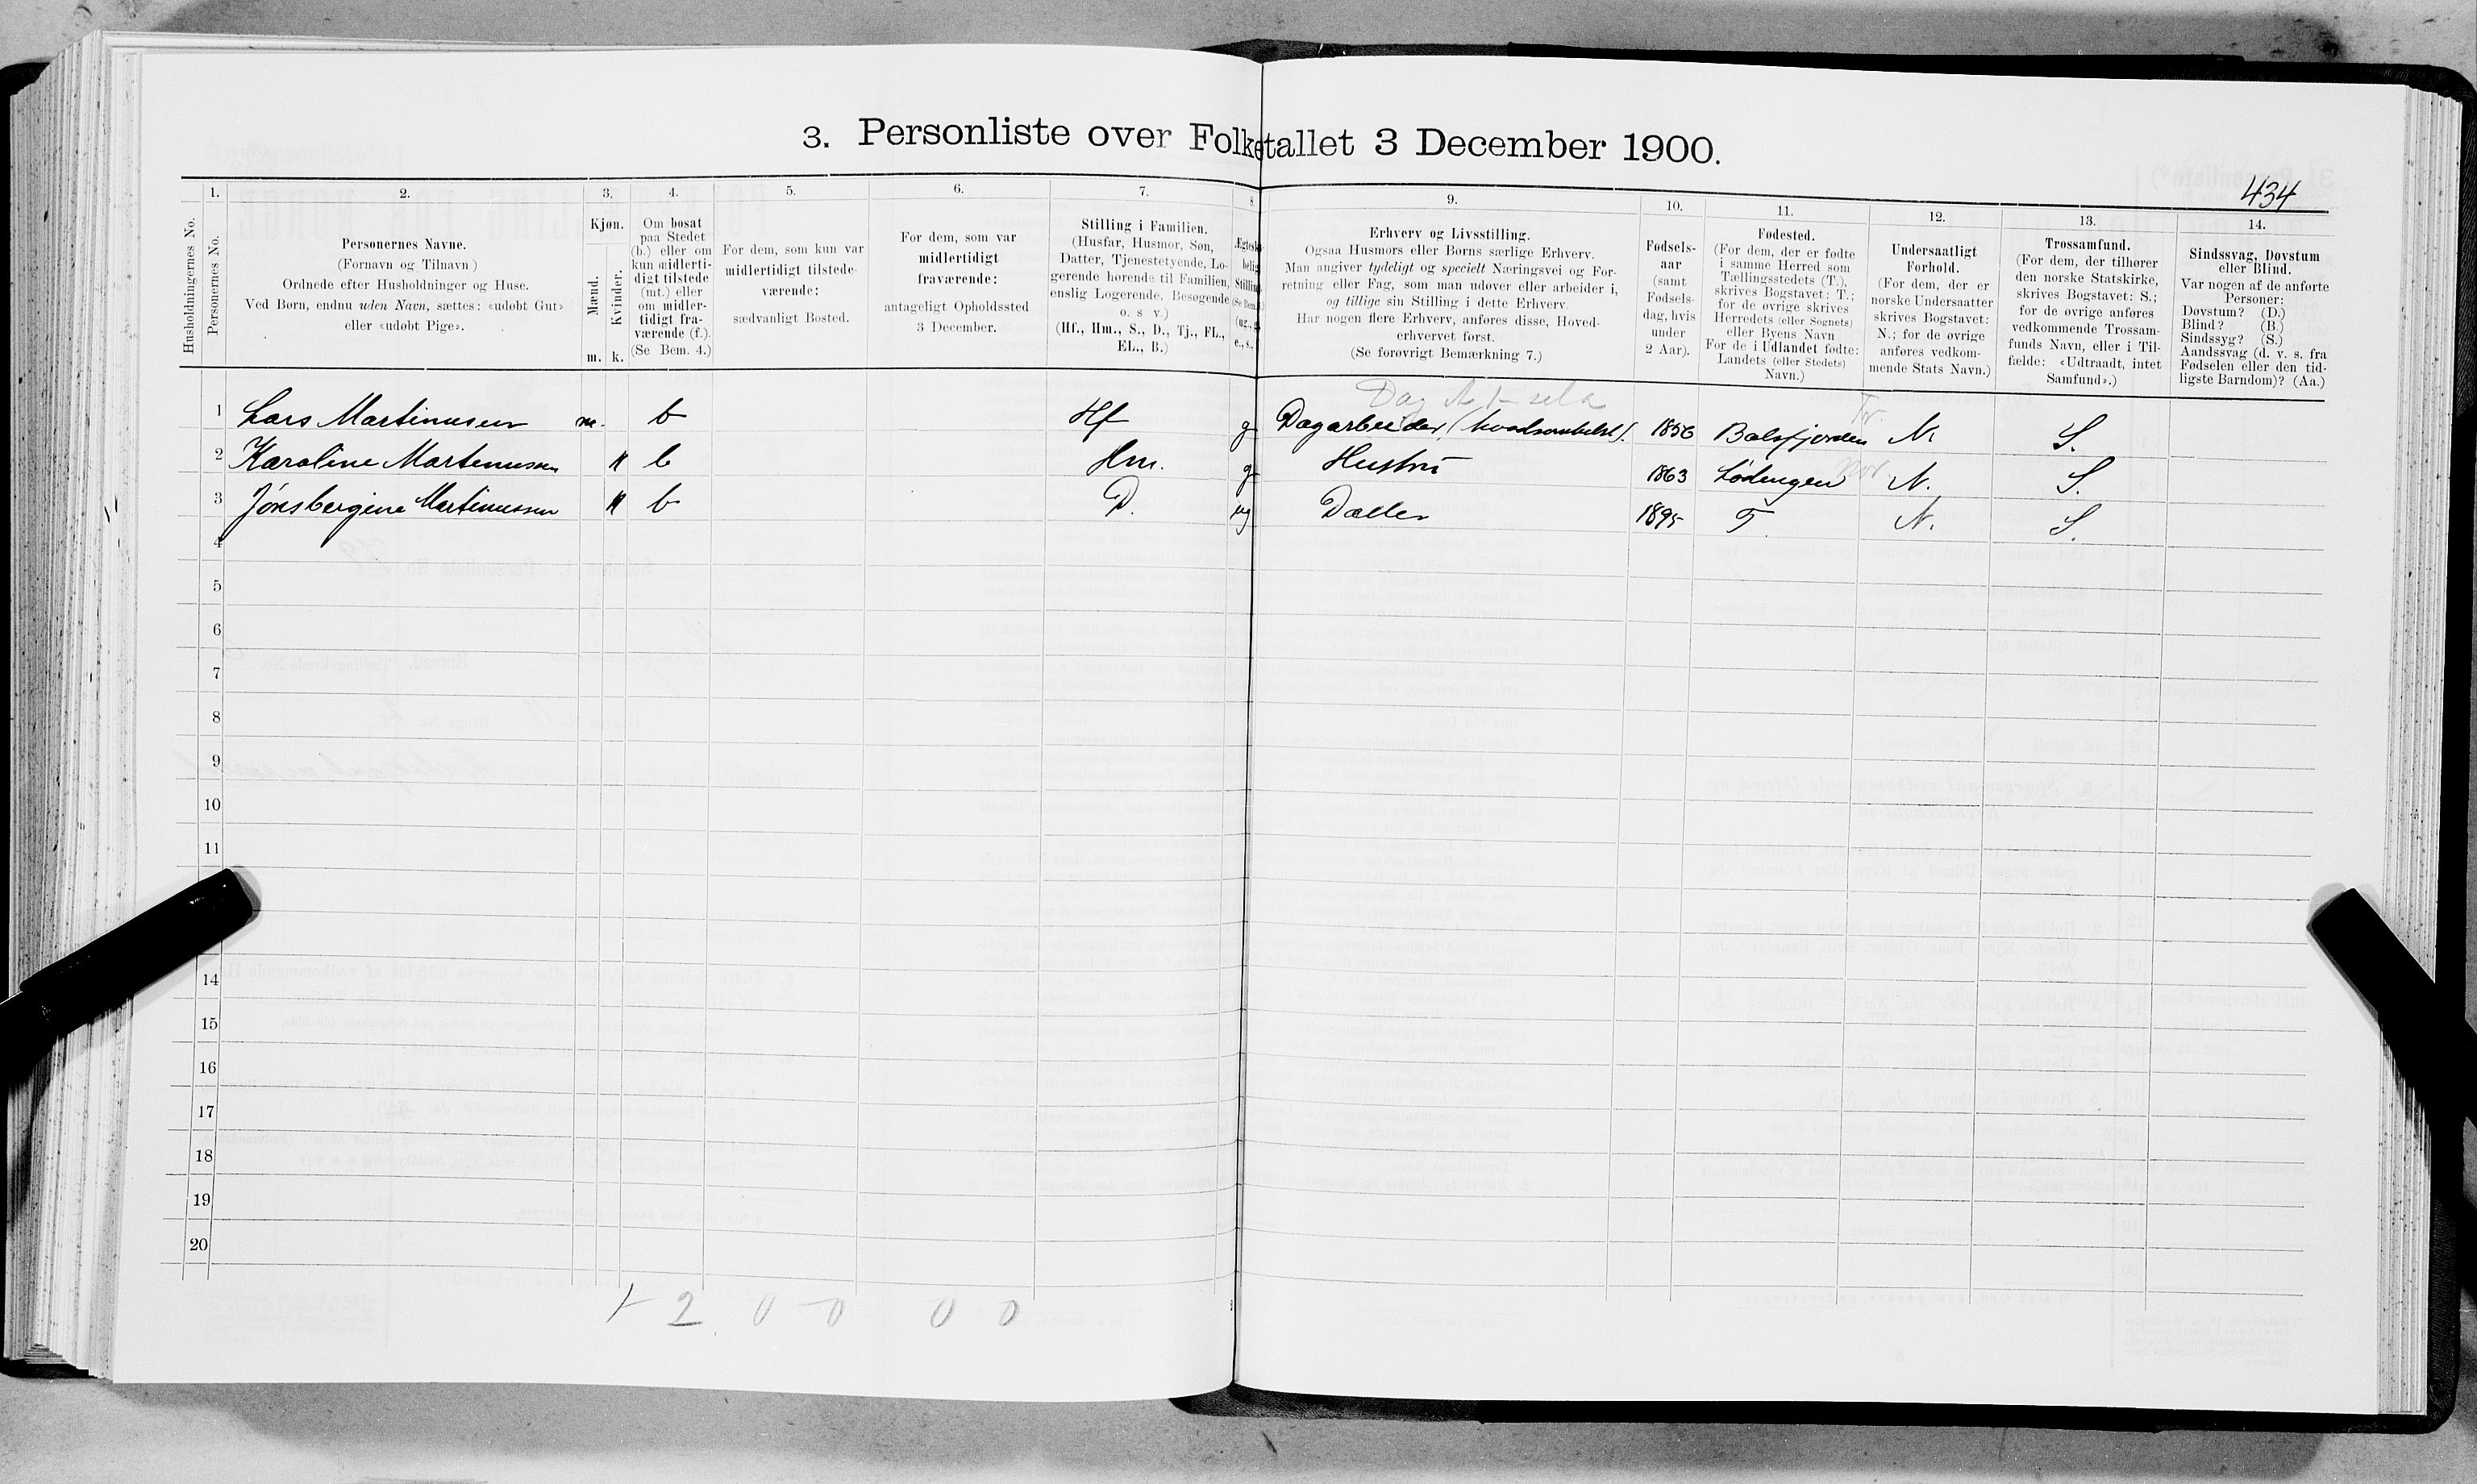 3. Personliste over Folketallet 3 December 1900.
434
1. 2. 3. 4. 5. 6. 7. 8. 9. 10. 11. 12. 13. 14.
Husholdningernes No.
Personernes No.
Personernes Navne.
(Fornavn og Tilnavn)
Ordnede efter Husholdninger og Huse.
Ved Børn, endnu uden Navn, sættes: «udøbt Gut»
eller «udøbt Pige».
Kjøn.
Mænd.
Kvinder.
m. k.
Om bosat
paa Stedet
(b.) eller om
kun midlerti-
digt tilstede
(mt.) eller
om midler-
tidigt fra-
værende (f.).
(Se Bem. 4.)
For dem, som kun var
midlertidigt tilstede-
værende:
sædvanligt Bosted.
For dem, som var
midlertidigt
fraværende:
antageligt Opholdssted
3 December.
Stilling i Familien.
(Husfar, Husmor, Søn,
Datter, Tjenestetyende, Lo-
gerende hørende til Familien,
enslig Logerende, Besøgende
o. s v.)
(Hf., Hm., S., D., Tj., FL.,
EL., B.)
Erhverv og Livsstilling.
Ogsaa Husmors eller Børns særlige Erhverv.
Man angiver tydeligt og specielt Næringsvei og For-
retning eller Fag, som man udøver eller arbeider i,
og tillige sin Stilling i dette Erhverv
Har nogen flere Erhverv, anføres disse, Hoved-
erhvervet først.
(Se forøvrigt Bemærkning 7.)
Fødsels-
aar
(samt
Fødsels-
dag, hvis
under
2 Aar).
Fødested.
(For dem, der er fødte
i samme Herred som
Tællingsstedets (T.),
skrives Bogstavet: T.;
for de øvrige skrives
Herredets (eller Sognets)
eller Byens Navn
For de i Udlandet fødte:
Landets (eller Stedets)
Navn.)
Undersaatligt
Forhold.
(For dem, der er
norske Undersaatter
skrives Bogstavet:
N.; for de øvrige
anføres vedkom-
mende Stats Navn.)
Trossamfund.
(For dem, der tilhører
den norske Statskirke,
skrives Bogstavet: S.;
for de øvrige anføres
vedkommende Trossam-
funds Navn, eller i Til-
fælde: «Udtraadt, intet
Samfund».)
Sindssvag, Døvstum
eller Blind.
Var nogen af de anførte
Personer:
Døvstum? (D.)
Blind? (B.)
Sindssyg? (S.)
Aandssvag (d. v. s. fra
Fødselen eller den tid-
ligste Barndom)? (Aa.)
1 Lars Martinusen m. b Hf g Dagarbeider, 1856 Balsfjorden N. S.
2 Karoline Martinussen k b Hm. g Hustru 1863 Lødingen N. S.
3 Jønsbergine Martinussen k b D. ug Datter 1895 T. N. S.
4
5
6
7
8
9
10
11
14
15
16
17
18
19
20
1 - 2 0 - 0 0 0